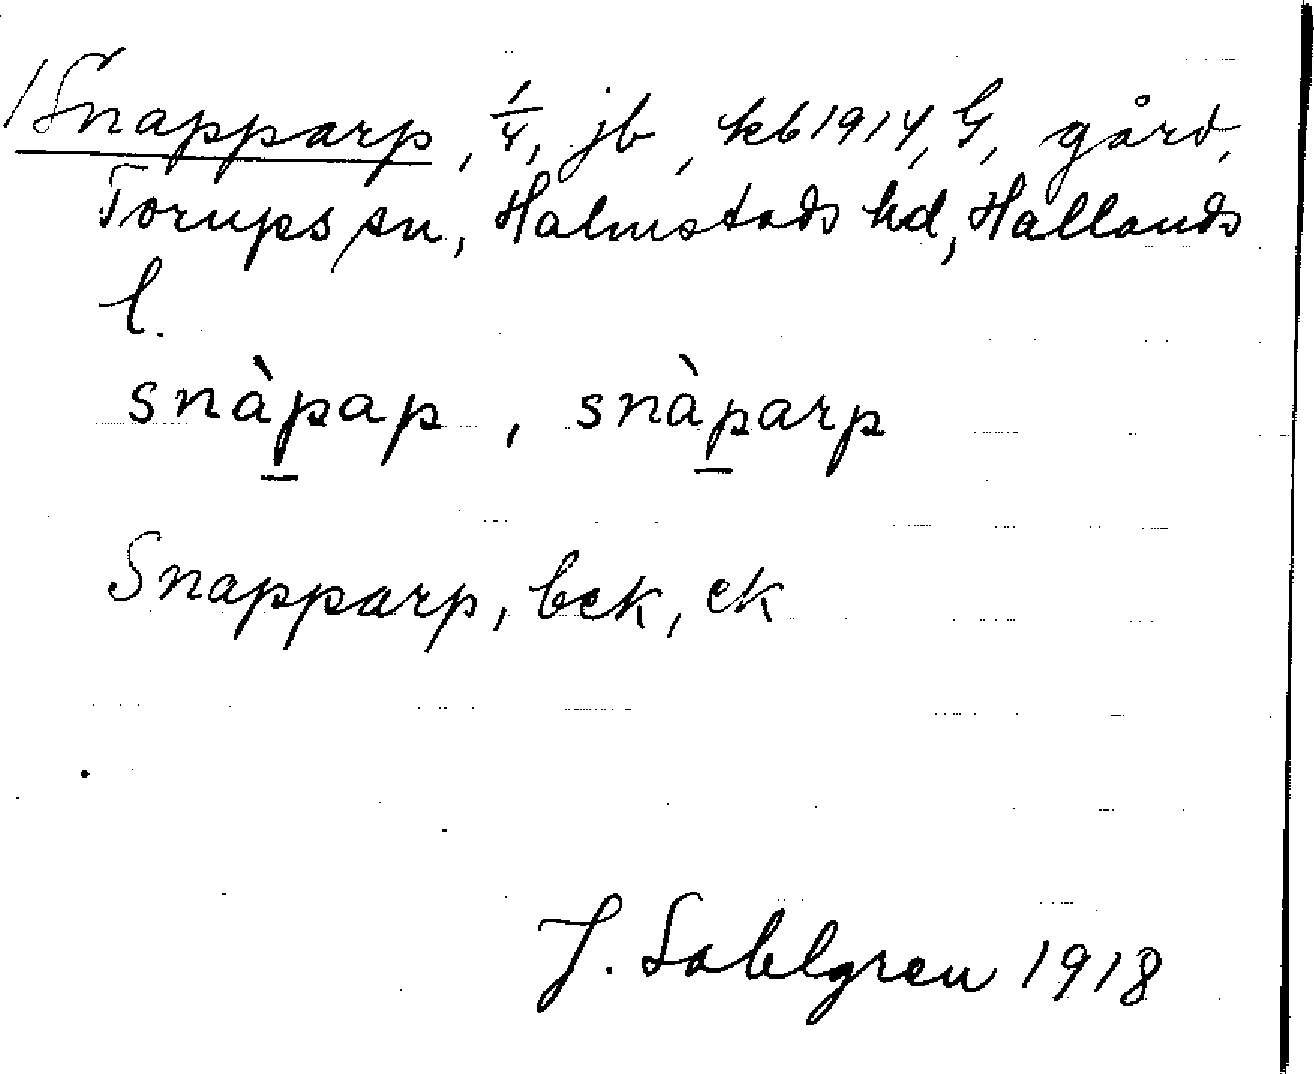 /Snapparp, 1/4, jb, kb 1914, G, gård,
Torups sn, Halmstads hd, Hallands
l.
snàp̲ap, snàp̲arp
Snapparp, bek, ek
J. Sahlgren 1918